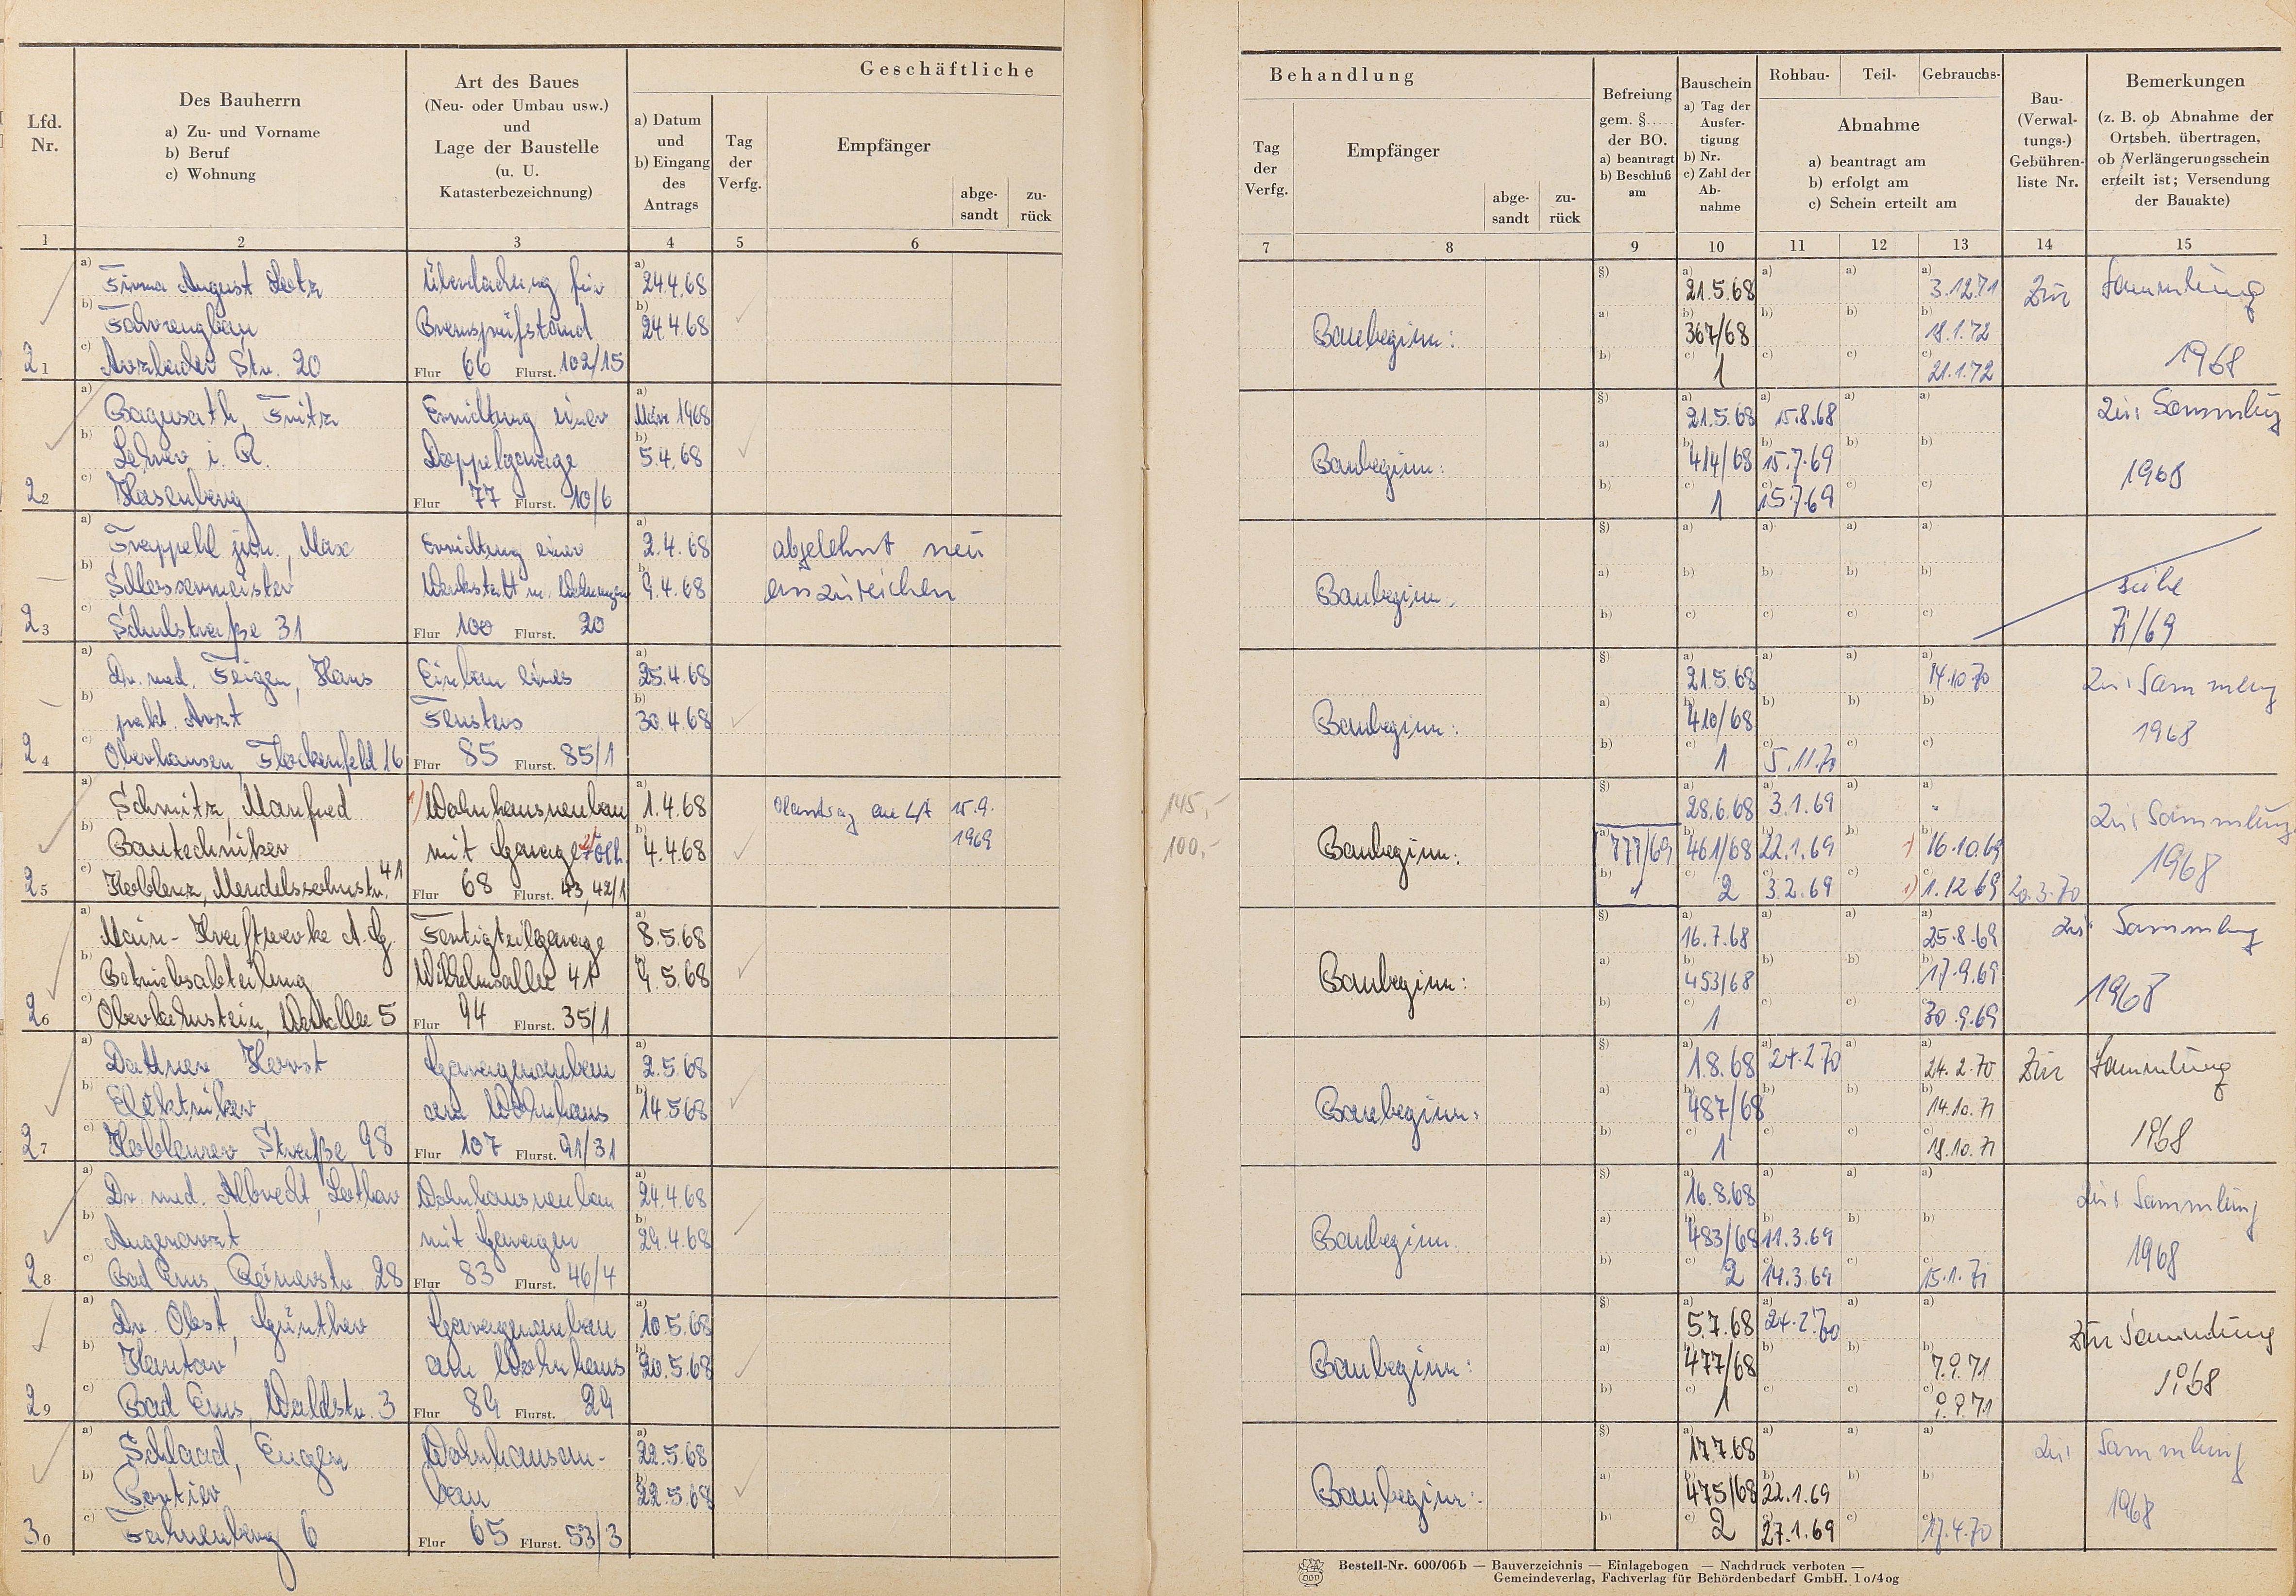 Geschäftliche
Lfd. Nr.
Des Bauherrn
a) Zu- und Vorname
b) Beruf
c) Wohnung
Art des Baues
(Neu- oder Umbau usw.)
und
Lage der Baustelle
(u. U.
Katasterbezeichnung)
a) Datum
und
b) Eingang
des
Antrags
Tag
der
Verfg.
Empfänger
abge-
sandt
zu-
rück
1 2 3 4 5 6
a) Firma August Hotz Überdachung für a) 24.4.68
b) Fahrzeugbau Bremsprüfstand b) 24.4.68
21 c) Arzbacher Str. 20 Flur 66 Flurst. 102/15
a) Fritz Errichtung einer a) März 1968
b) Lehrer i. R. Doppelgarage b) 5.4.68
22 c) Hasenberg Flur 77 Flurst. 10/6
a) jun., Max Errichtung einer a) 2.4.68 abgelehnt neu
b) Schlossermeister Werkstatt m. Wohnungen b) 9.4.68 einzureichen
23 c) Schulstraße 31 Flur 100 Flurst. 20
a) Dr. med. Feigen, Hans Einbau eines a) 25.4.68
b) prakt. Arzt Fensters b) 30.4.68
24 c) Oberhausen, Flockenfeld 16 Flur 85 Flurst. 85/1
a) Schmitz, Manfred 1) Wohnhausneubau a) 1.4.68 15.9.
b) Bautechniker mit Garage b) 4.4.68 1969
25 c) Koblenz, Mendelssohnstr. 41 Flur 68 Flurst. 43, 42/1
a) Main-Kraftwerke A.G. Fertigteilgarage a) 8.5.68
b) Betriebsabteilung Wilhelmsallee 41 b) 9.5.68
26 c) Oberlahnstein, 5 Flur 94 Flurst. 35/1
a) Dattner Horst Garagenanbau a) 2.5.68
b) Elektriker am Wohnhaus b) 14.5.68
27 c) Koblenzer Straße 98 Flur 107 Flurst. 91/31
a) Dr. med. Albrecht, Lothar Wohnhausneubau a) 24.4.68
b) Augenarzt mit Garagen b) 29.4.68
28 c) Bad Ems, Römerstr. 28 Flur 83 Flurst. 46/4
a) Dr. Obst, Günther Garagenanbau a) 10.5.68
b) am Wohnhaus b) 20.5.68
29 c) Bad Ems, Waldstr. 3 Flur 89 Flurst. 29
a) Schlaad, Eugen Wohnhausan- a) 22.5.68
b) Portier bau b) 22.5.68
30 c) Fahnenberg 6 Flur 65 Flurst. 53/3
145,-
100,-
Behandlung
Tag
der
Verfg.
Empfänger
abge-
sandt
zu-
rück
Befreiung
gem. §.....
der BO.
a) beantragt
b) Beschluß
am
Bauschein
a) Tag der
Ausfer-
tigung
b) Nr.
c) Zahl der
Ab-
nahme
Rohbau- Teil- Gebrauchs-
Abnahme
a) beantragt am
b) erfolgt am
c) Schein erteilt am
Bau-
(Verwal-
tungs-)
Gebühren-
liste Nr.
Bemerkungen
(z. B. ob Abnahme der
Ortsbeh. übertragen,
ob Verlängerungsschein
erteilt ist; Versendung
der Bauakte)
7 8 9 10 11 12 13 14 15
§) a) 21.5.68 a) a) a) 3.12.71 Zur Sammlung
Baubeginn: a) b) 367/68 b) b) b) 18.1.72
b) c) 1 c) c) c) 21.1.72 1968
§) a) 21.5.68 a) 15.8.68 a) a) Zur Sammlung
Baubeginn: a) b) 414/68 b) 15.7.69 b) b) 1968
b) c) 1 c) 15.7.69 c) c)
§) a) a) a) a)
Baubeginn: a) b) b) b) b) siehe
b) c) c) c) c) 71/69
§) a) 21.5.68 a) a) a) 14.10.70 Zur Sammlung
Baubeginn: a) b) 410/68 b) b) b) 1968
b) c) 1 c) 5.11.70 c) c)
§) a) 28.6.68 a) 3.1.69 a) a) Zur Sammlung
Baubeginn: a) 777/69 b) 461/68 b) 22.1.69 b) 1) b) 16.10.69 1968
b) c) 2 c) 3.2.69 c) 1) c) 1.12.69 20.3.70
§) a) 16.7.68 a) a) a) 25.8.69 zur Sammlung
Baubeginn: a) b) 453/68 b) b) b) 17.9.69 1968
b) c) 1 c) c) c) 30.9.69
§) a) 1.8.68 a) 24.2.70 a) a) 24.2.70 Zur Sammlung
Baubeginn: a) b) 487/68 b) b) b) 14.10.71
b) c) 1 c) c) c) 18.10.71 1968
§) a) 16.8.68 a) a) a) zur Sammlung
Baubeginn a) b) 483/68 b) 11.3.69 b) b) 1968
b) c) 2 c) 14.3.69 c) c) 15.1.71
§) a) 5.7.68 a) 24.2.70 a) a) Zur Sammlung
Baubeginn: a) b) 477/68 b) b) b) 7.9.71 1968
b) c) 1 c) c) c) 9.9.71
§) a) 17.7.68 a) a) a) zur Sammlung
Baubeginn: a) b) 475/68 b) 22.1.69 b) b) 1968
b) c) 2 c) 27.1.69 c) c) 17.4.70
Bestell-Nr. 600/06 b — Bauverzeichnis — Einlagebogen — Nachdruck verboten —
Gemeindeverlag, Fachverlag für Behördenbedarf GmbH. 1 o/4 og